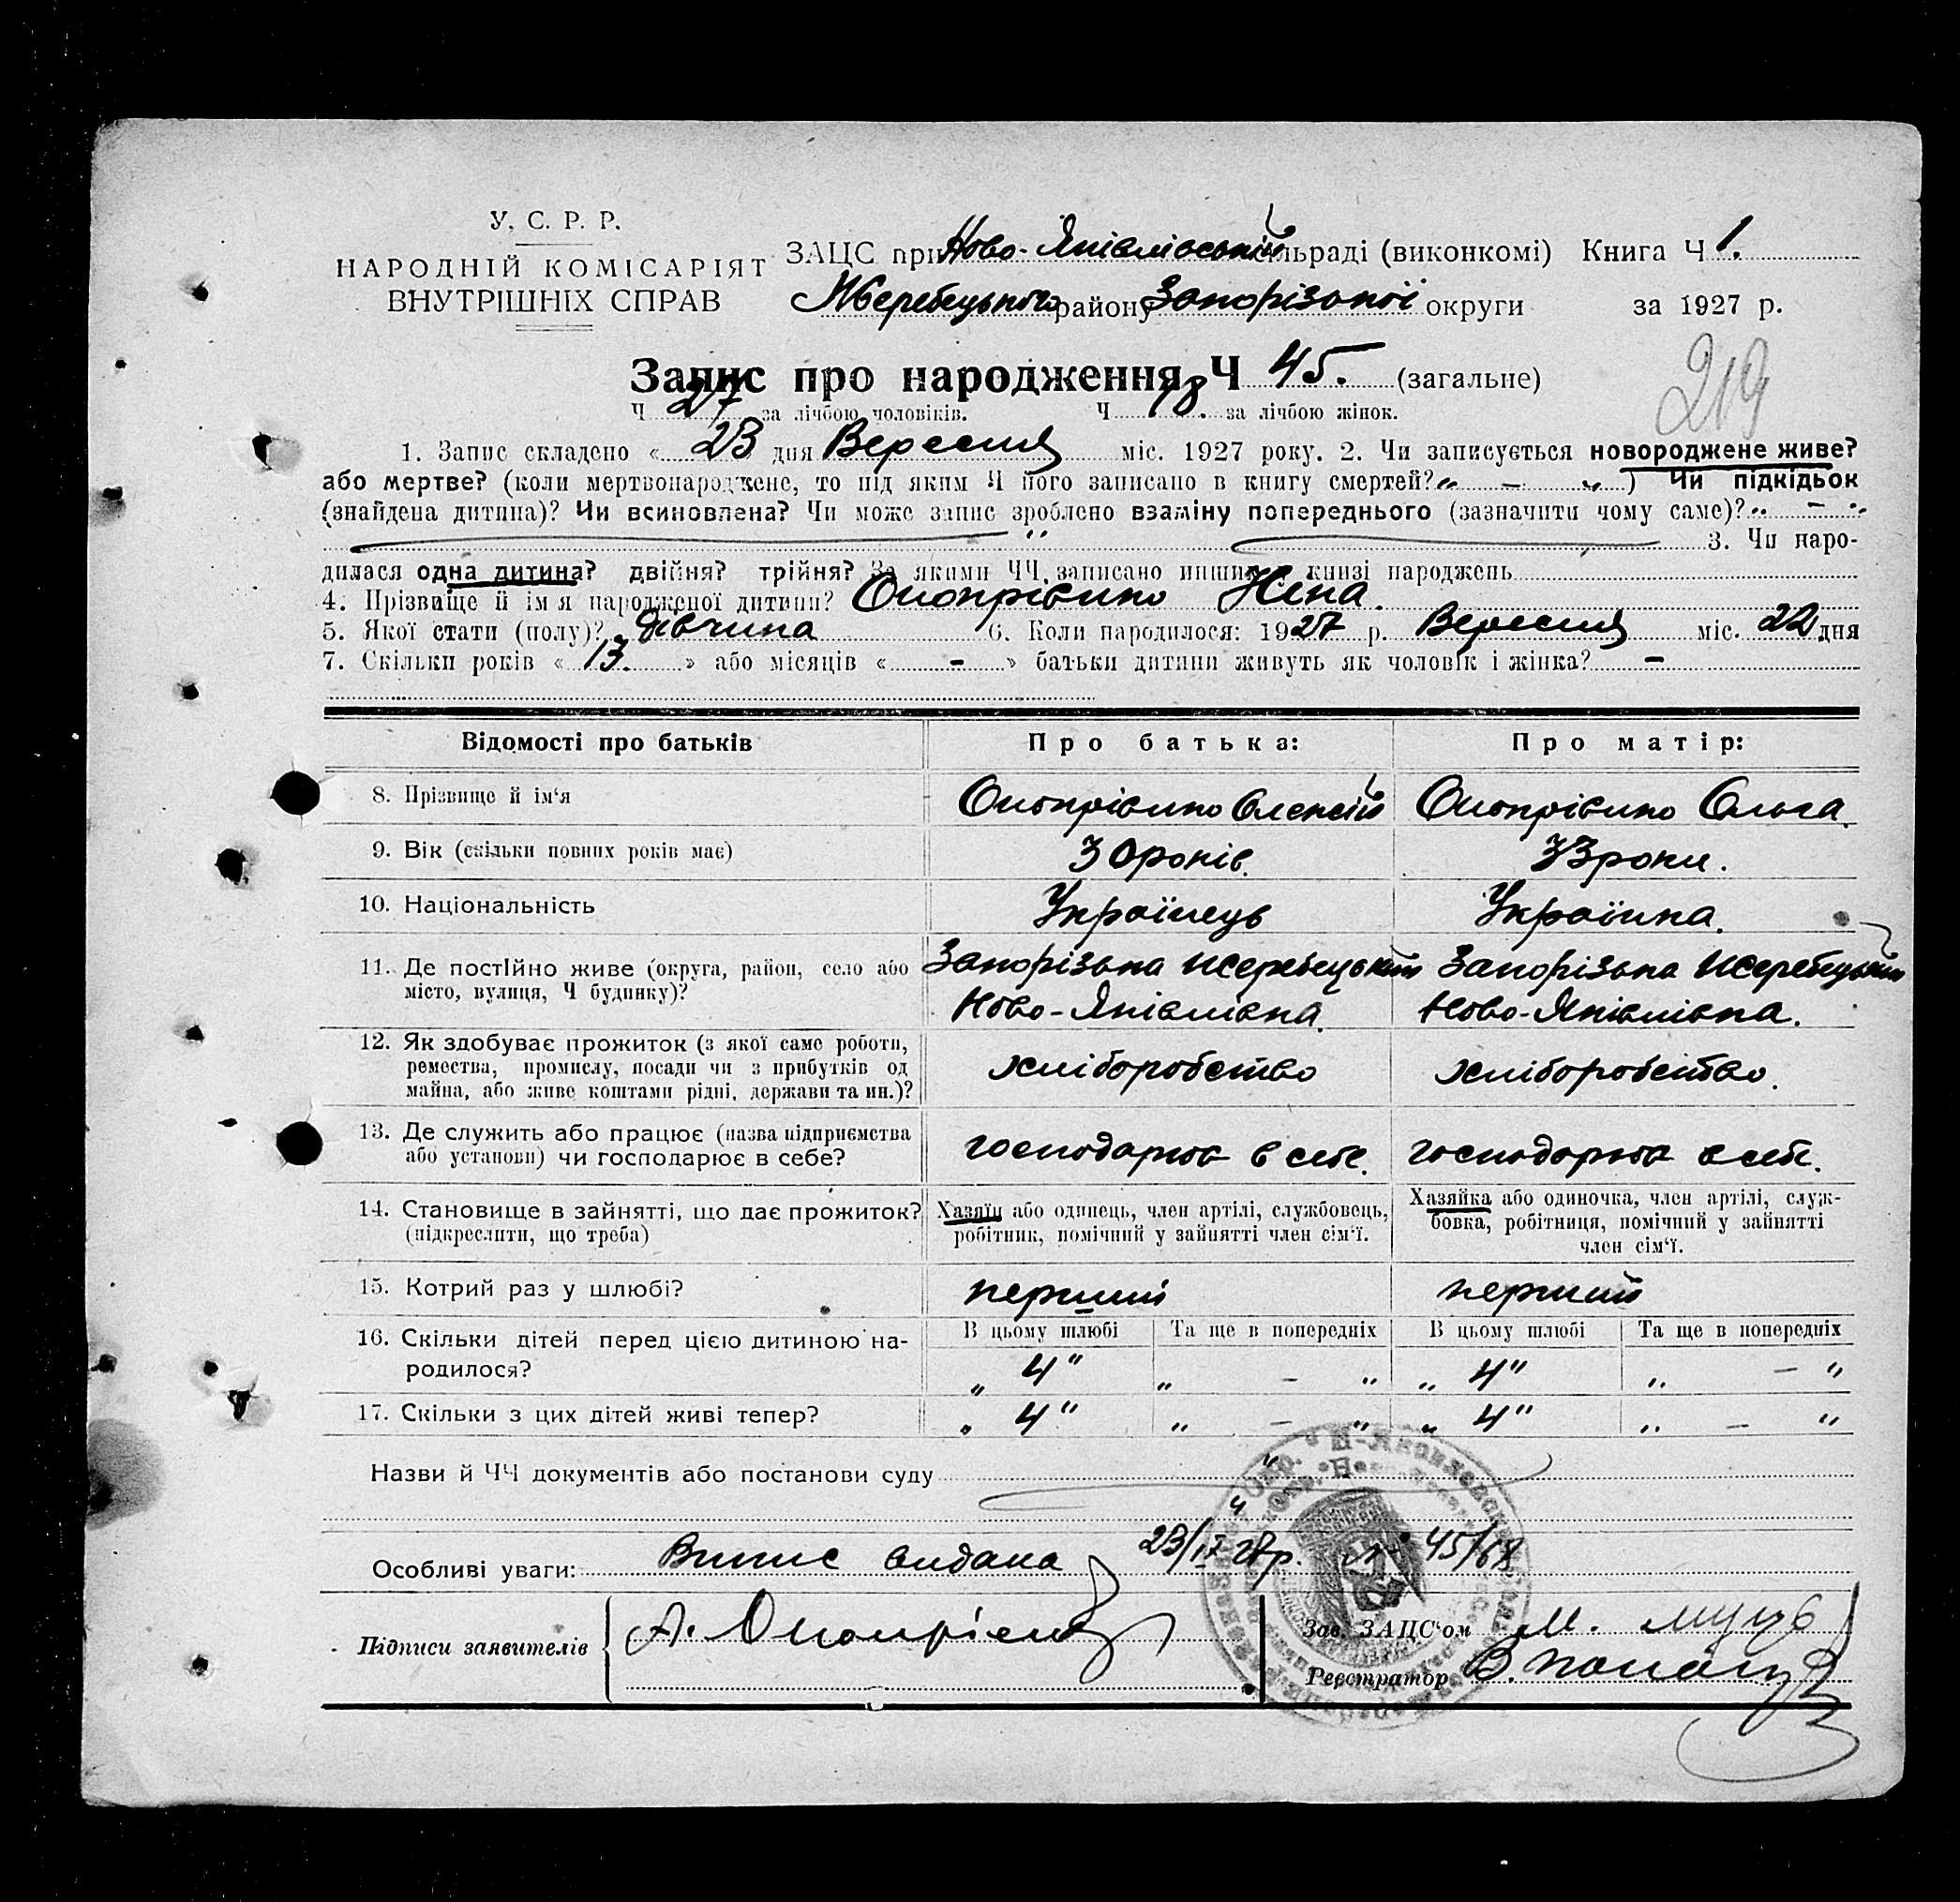 У. С. Р. Р.
НАРОДНІЙ КОМІСАРІЯТ
ВНУТРІШНІХ СПРАВ
ЗАЦС при Ново-Яківлівській сільраді (виконкомі) Книга Ч 1.
Жеребецького району Запорізької округи за 1927 р.
Запис про народження Ч 45. (загальне)
219
Ч 27 за лічбою чоловіків. Ч 18. за лічбою жінок.
1. Запис складено « 23 дня Вересня міс. 1927 року. 2. Чи записується новороджене живе?
або мертве? (коли мертвонароджене, то під яким Ч його записано в книгу смертей? „ – „ ) Чи підкідьок
(знайдена дитина)? Чи всиновлена? Чи може запис зроблено взаміну попереднього (зазначити чому саме)? „ – „
„ 3. Чи наро-
дилася одна дитина? двійня? трійня? За якими ЧЧ. записано инших у книзі народжень
4. Прізвище й ім'я народженої дитини? Онопрієнко Ніна.
5. Якої стати (полу)? дівчина 6. Коли народилося: 1927 р. Вересня міс. 22 дня
7. Скільки років « 13. » або місяців « – » батьки дитини живуть як чоловік і жінка? –
Відомості про батьків Про батька: Про матір:
8. Прізвище й ім'я Онопрієнко Олексій Онопрієнко Ольга.
9. Вік (скільки повних років має) 30 років. 33 роки.
10. Національність Українець Українка.
11. Де постійно живе (округа, район, село або Запорізька Жеребецький Запорізька Жеребецький
місто, вулиця, Ч будинку)? Ново-Яківлівка. Ново-Яківлівка.
12. Як здобуває прожиток (з якої саме роботи,
ремества, промислу, посади чи з прибутків од хліборобство хліборобство.
майна, або живе коштами рідні, держави та ин.)?
13. Де служить або працює (назва підприємства господарює в себе. господарює в себе.
або установи) чи господарює в себе?
14. Становище в зайнятті, що дає прожиток? Хазяїн або одинець, член артілі, службовець, Хазяйка або одиночка, член артілі, служ-
(підкреслити, що треба) робітник, помічний у зайнятті член сім'ї. бовка, робітниця, помічний у зайнятті
член сім'ї.
15. Котрий раз у шлюбі? перший перший
16. Скільки дітей перед цією дитиною на- В цьому шлюбі Та ще в попередніх В цьому шлюбі Та ще в попередніх
родилося? „ 4" „ – „ „ 4" „ – "
17. Скільки з цих дітей живі тепер? „ 4" „ – „ „ 4" „ – "
Назви й ЧЧ документів або постанови суду
Особливі уваги: Випис видана 23/IX 27 р.
Підписи заявителів А. Онопрієнко Зав. ЗАЦС'ом М.
Реєстратор В.